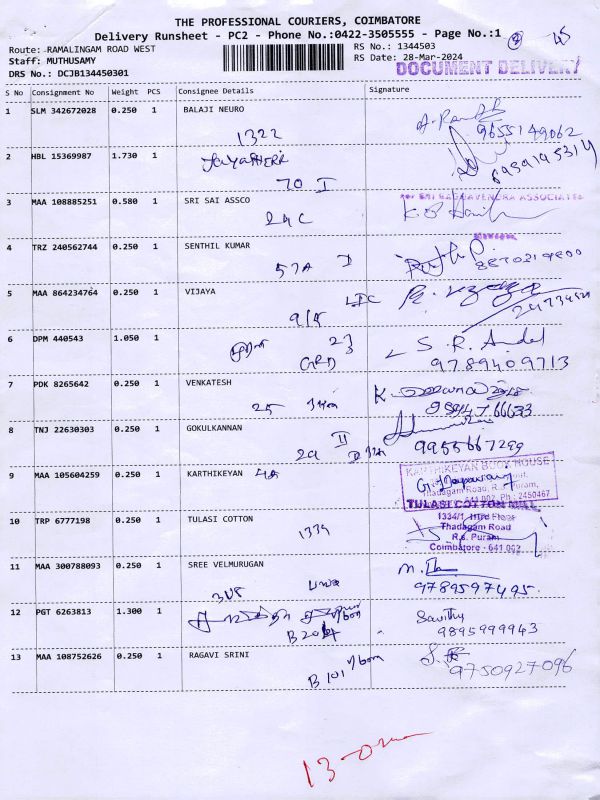 THE PROFESSIONAL COURIERS, COIMBATORE
Delivery Runsheet - PC2 - Phone No.:0422-3505555 - Page No.:1
45
Route: RAMALINGAM ROAD WEST
RS No.: 1344503
Staff: MUTHUSAMY
RS Date: 28-Mar-2024
DOCUMENT DELIVERY
DRS No.: DCJB134450301
S No Consignment No Weight PCS Consignee Details Signature
1 SLM 342672028 0.250 1 BALAJI NEURO
1322
9655149062
2 HBL 15369987 1.730 1
70 I
3 MAA 108885251 0.580 1 SRI SAI ASSCO
for SRI RAGHAVENDRA ASSOCIATES
24 C
4 TRZ 240562744 0.250 1 SENTHIL KUMAR
57A I
8870219800
5 MAA 864234764 0.250 1 VIJAYA
LIC
9/5
6 DPM 440543 1.050 1
23
GRD
S. R. Andal
9789409713
7 PDK 8265642 0.250 1 VENKATESH
25
K.
8 TNJ 22630303 0.250 1 GOKULKANNAN
II
29
9955667299
9 MAA 105604259 0.250 1 KARTHIKEYAN 4A
KARTHIKEYAN BOOK HOUSE
Thadagam Road, R.S. Puram,
641 002. Ph : 2450467
10 TRP 6777198 0.250 1 TULASI COTTON
1334
TULASI COTTON MILL
1334/1, IIIrd Floor
Thadagam Road
R.s. Puram
Coimbatore - 641 002
11 MAA 300788093 0.250 1 SREE VELMURUGAN
9789597495.
12 PGT 6263813 1.300 1
B 204
Savithy
9895999943
13 MAA 108752626 0.250 1 RAGAVI SRINI
B 101
9750927096
13